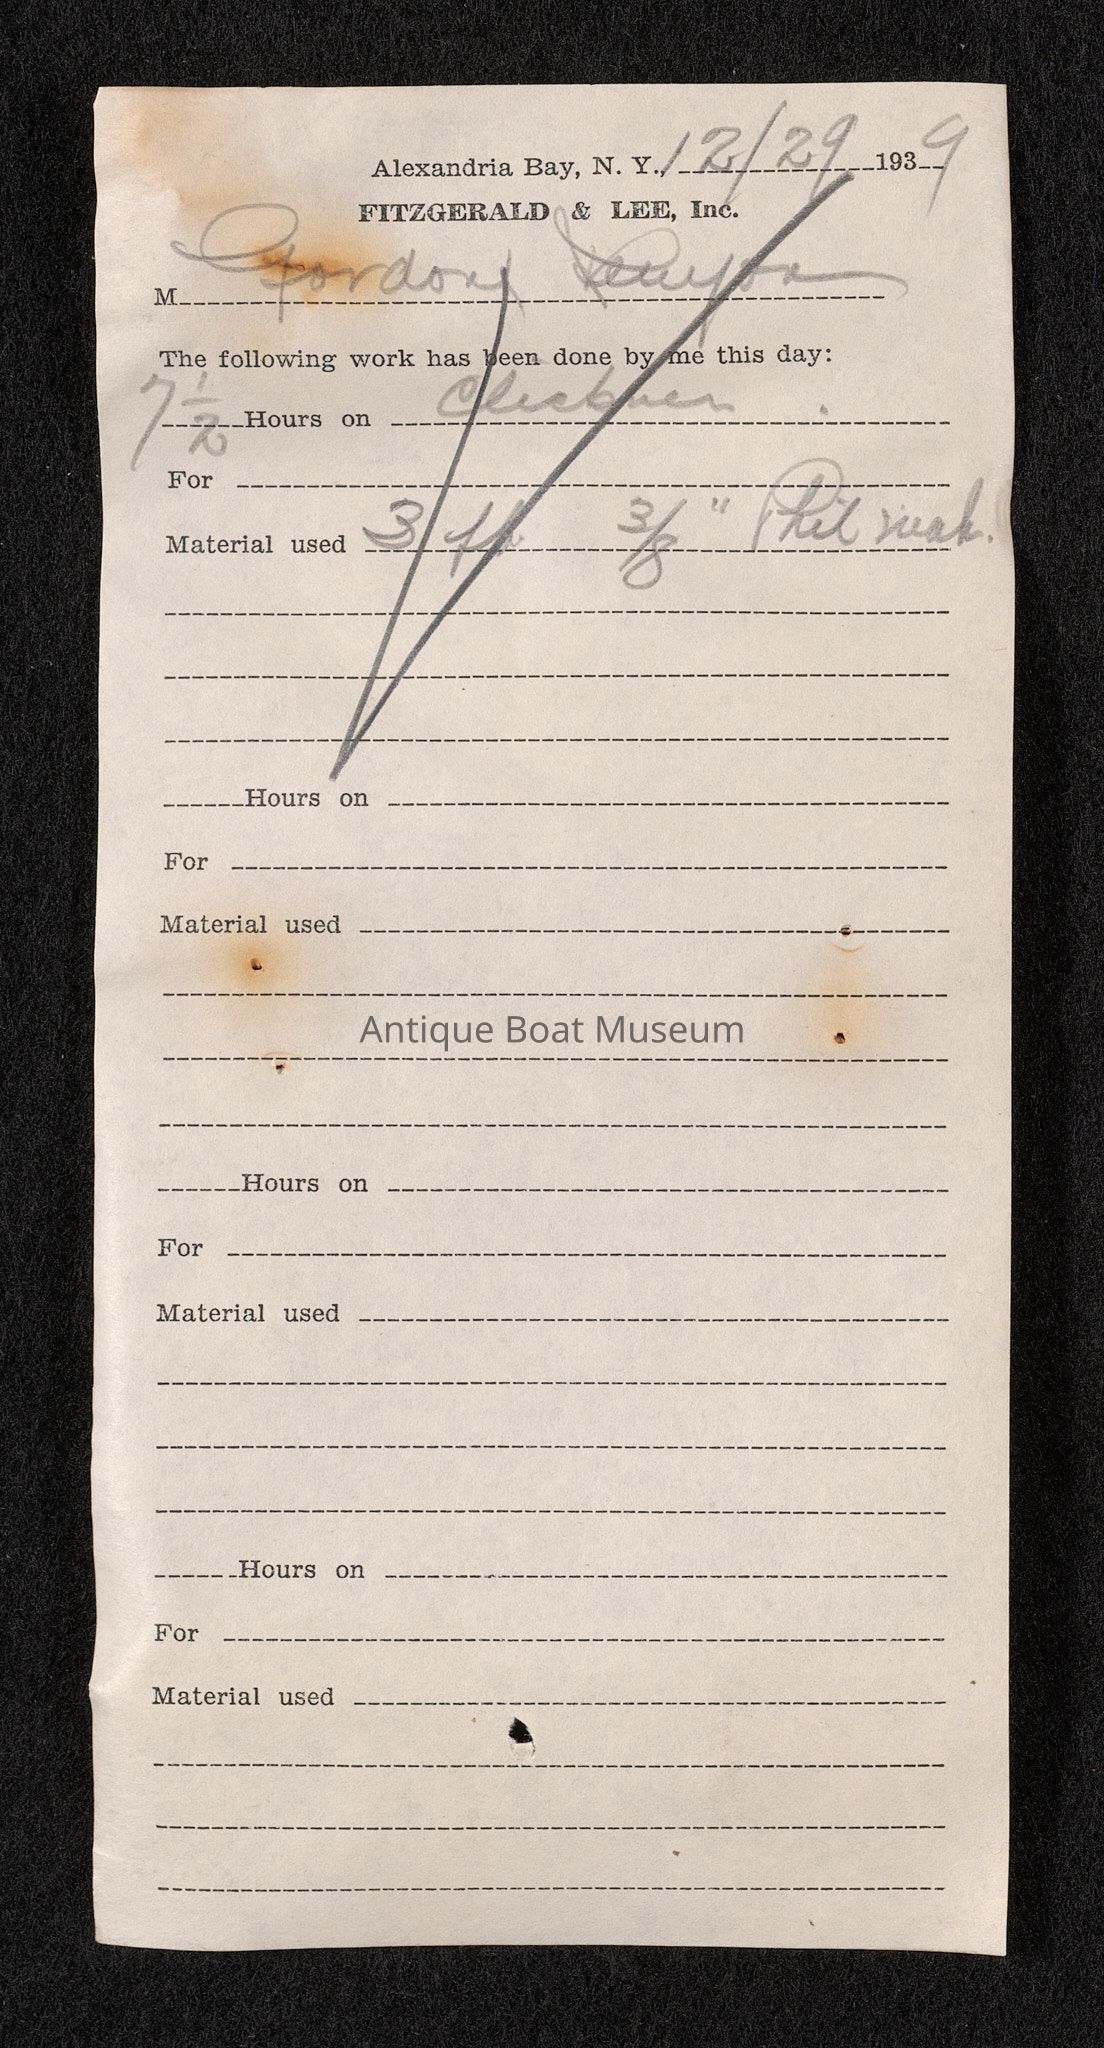 Alexandria Bay, N. Y., 12/29 1939
FITZGERALD & LEE, Inc.
M Gordon Kenyon
The following work has been done by me this day:
7 1/2 Hours on
For
Material used 3 ft 3/8 " Phil mah.
Hours on
For
Material used
Antique Boat Museum
Hours on
For
Material used
Hours on
For
Material used